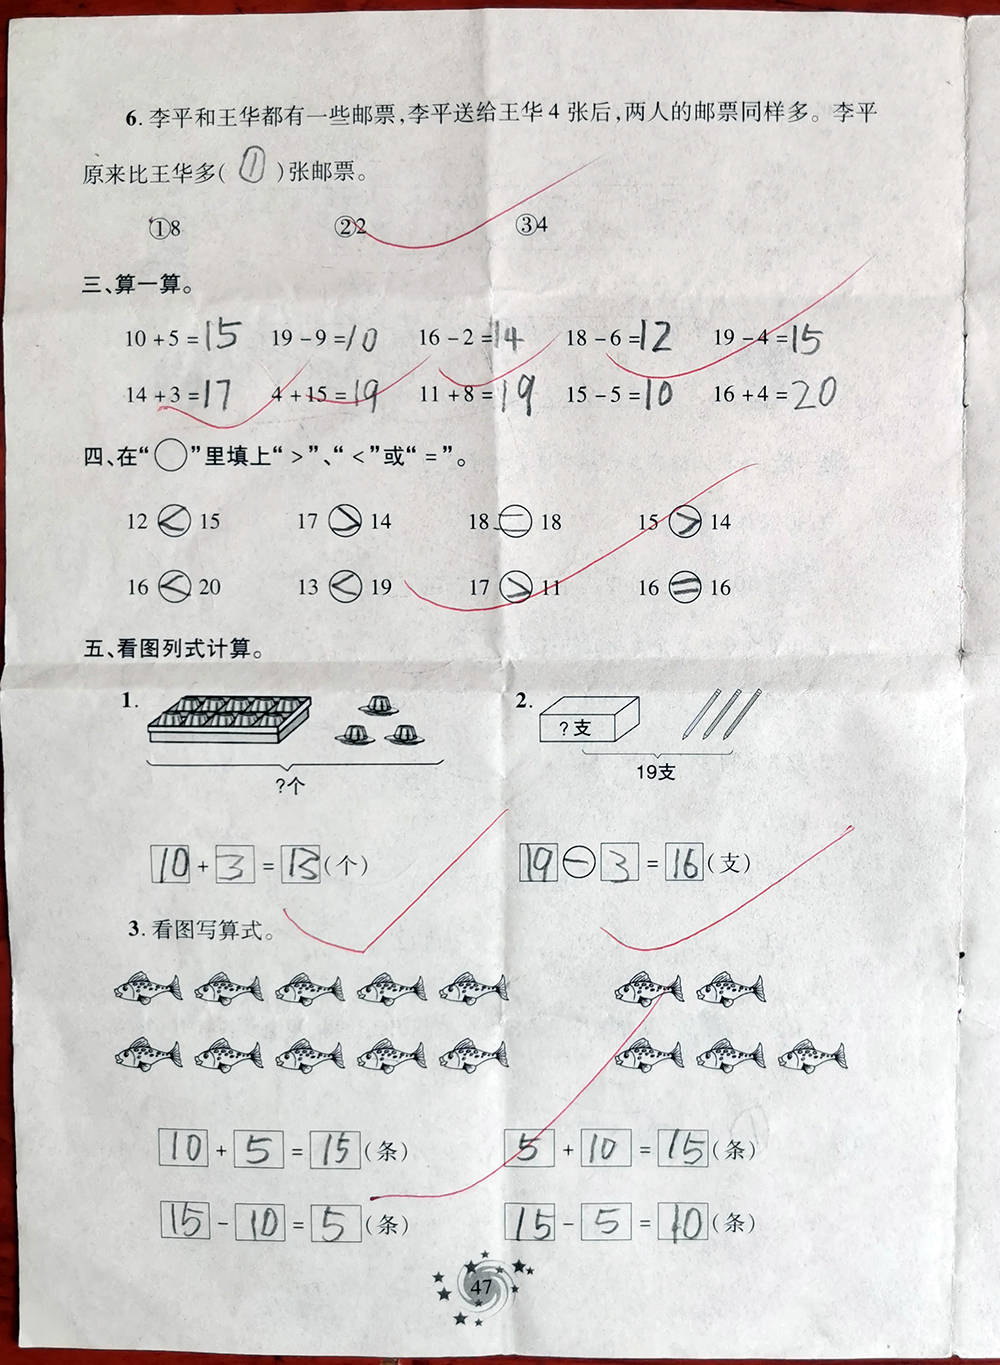 6. 李平和王华都有一些邮票,李平送给王华4张后,两人的邮票同样多。李平
原来比王华多( ① )张邮票。
①8 ②2 ③4
三、算一算。
10+5=15 19-9=10 16-2=14 18-6=12 19-4=15
14+3=17 4+15=19 11+8=19 15-5=10 16+4=20
四、在“○”里填上“>”、“<”或“=”。
12 < 15 17 > 14 18 = 18 15 > 14
16 < 20 13 < 19 17 > 11 16 = 16
五、看图列式计算。
1. 2.
?支
?个 19支
10+3=13(个) 19-3=16(支)
3. 看图写算式。
10+5=15(条) 5+10=15(条)
15-10=5(条) 15-5=10(条)
47